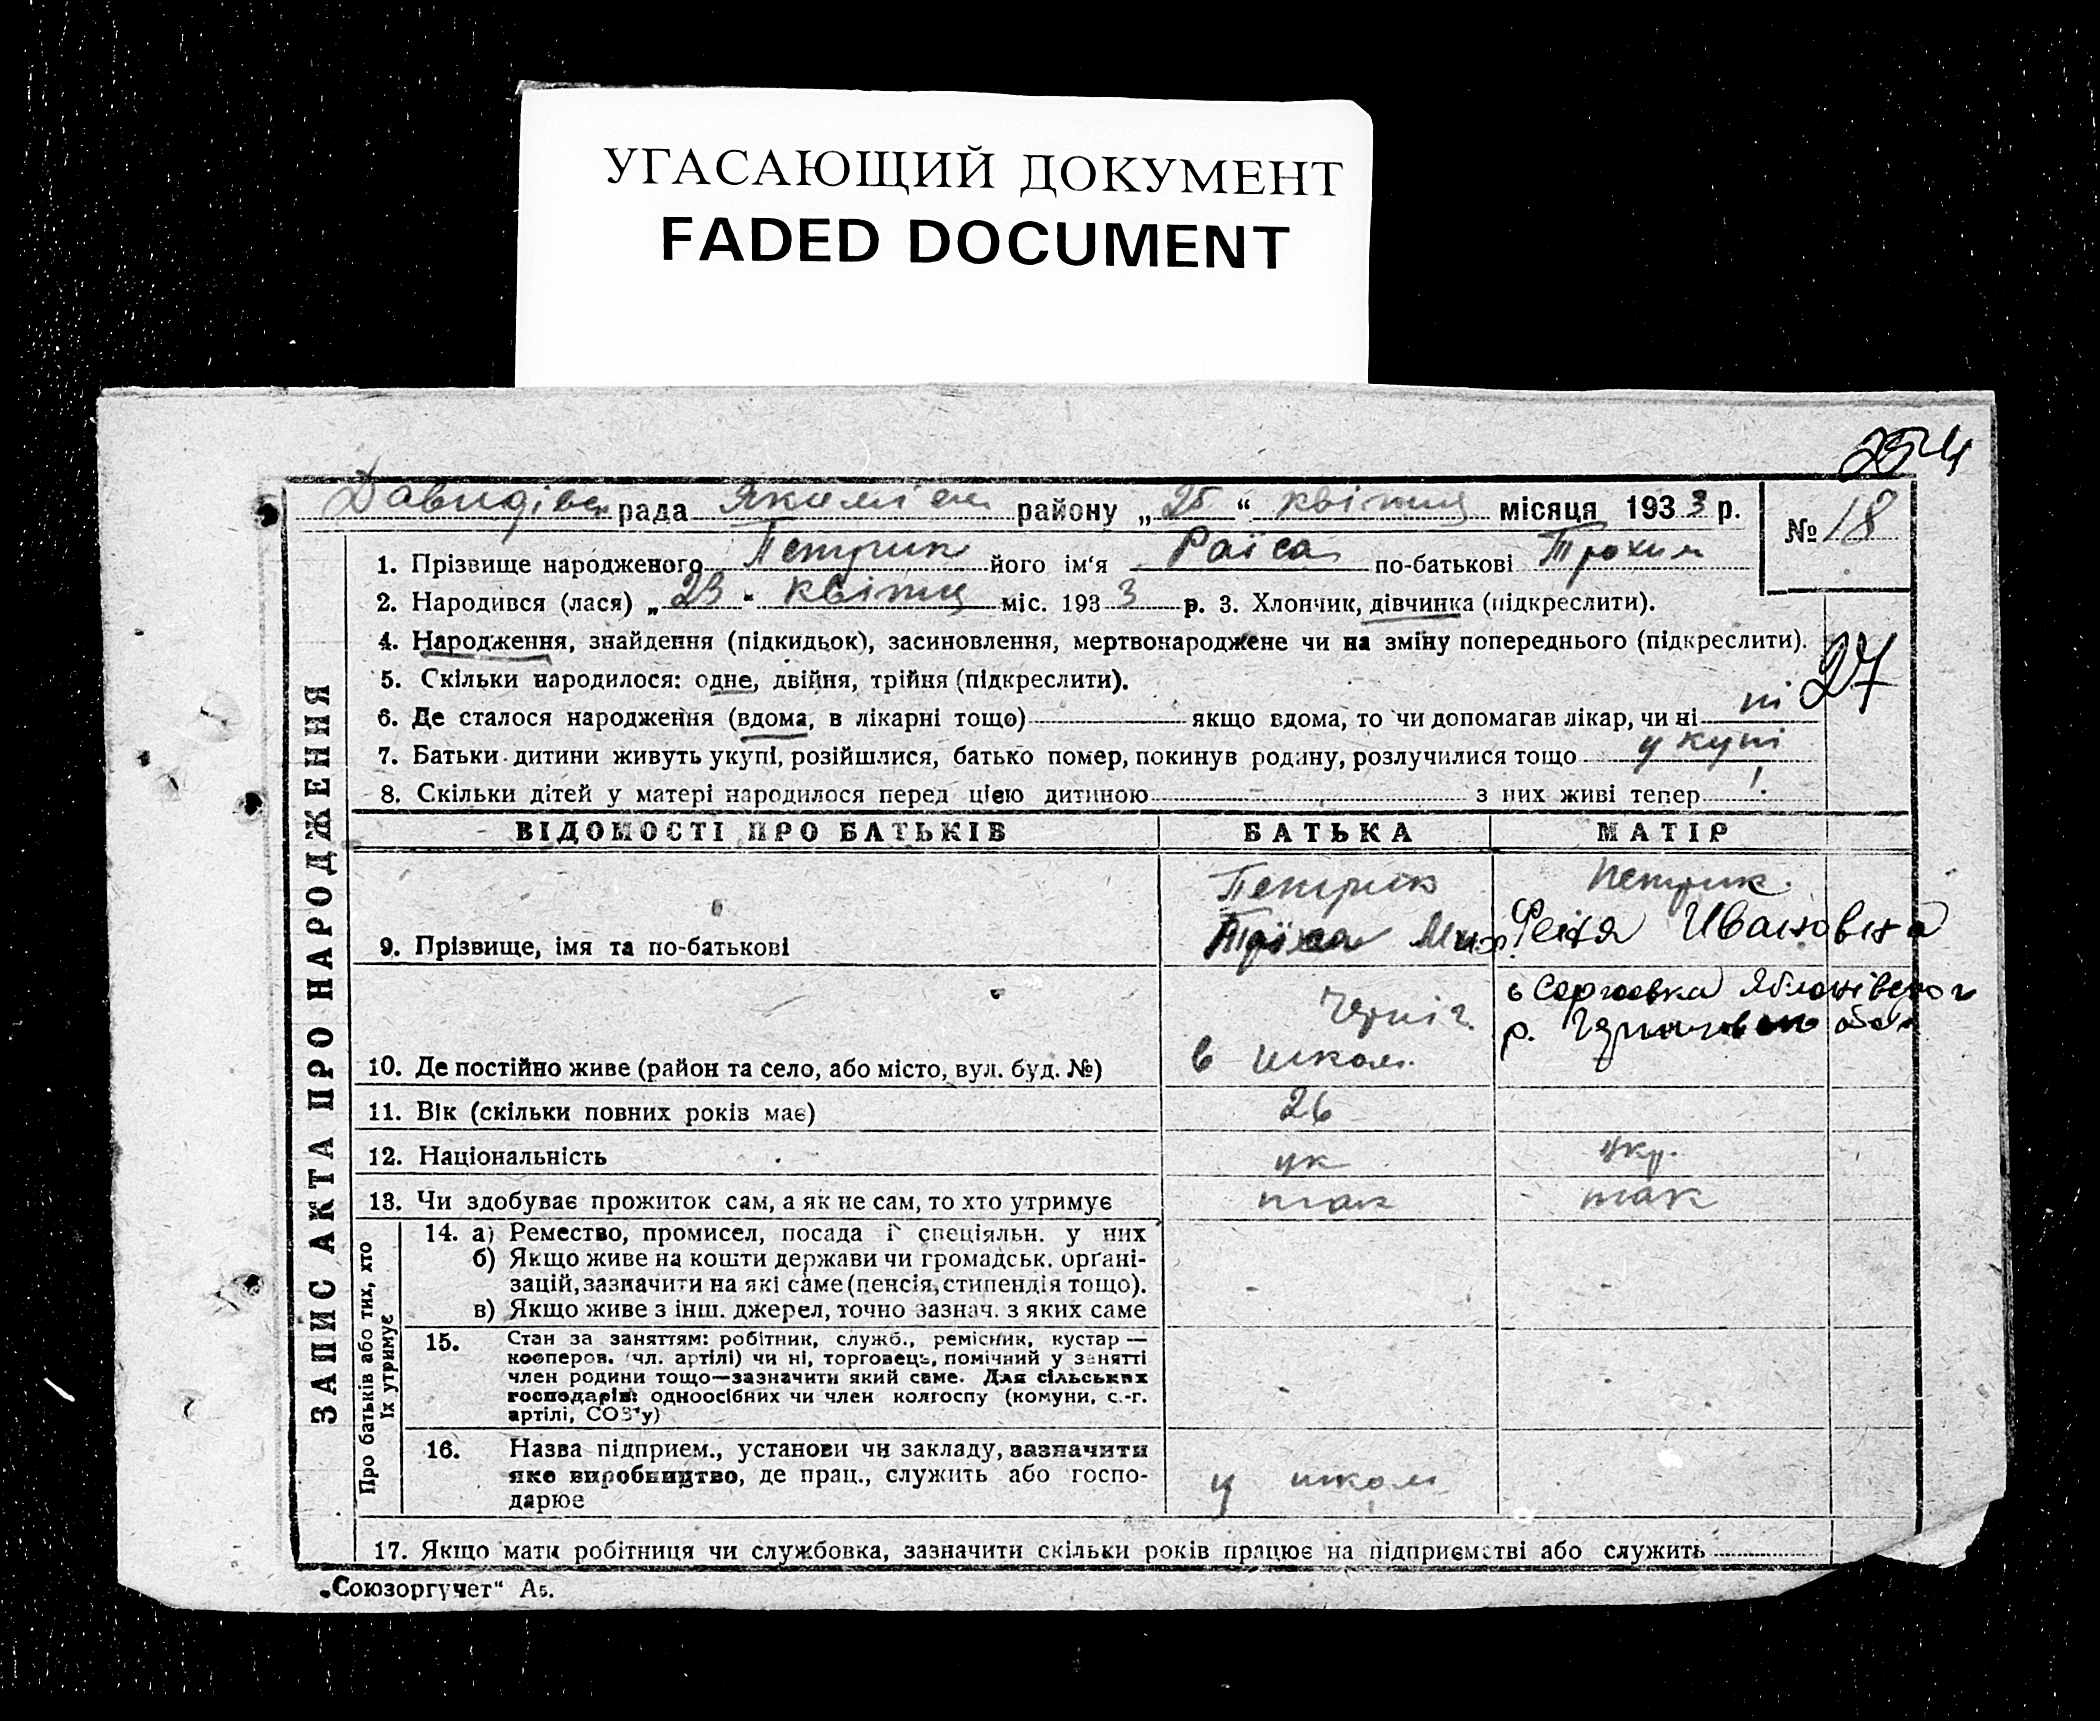 УГАСАЮЩИЙ ДОКУМЕНТ
FADED DOCUMENT
254
Давидівськ рада Якимів район районy „25“ квітня місяця 1933 р.
№ 18
1. Прізвище народженого Петрик його ім'я Раїса по-батькові Трохим
2. Народився (лася) „23“ квітня міс. 1933 р. 3. Хлопчик, дівчинка (підкреслити).
4. Народження, знайдення (підкидьок), засиновлення, мертвонароджене чи на зміну попереднього (підкреслити).
27
5. Скільки народилося: одне, двійня, трійня (підкреслити).
6. Де сталося народження (вдома, в лікарні тощо) якщо вдома, то чи допомагав лікар, чи ні ні
7. Батьки дитини живуть укупі, розійшлися, батько помер, покинув родину, розлучилися тощо укупі
8. Скільки дітей у матері народилося перед цією дитиною з них живі тепер
ЗАПИС АКТА ПРО НАРОДЖЕННЯ
ВІДОМОСТІ ПРО БАТЬКІВ БАТЬКА МАТІР
Петрик Петрик
9. Прізвище, імя та по-батькові Ивановна
Черніг. с Сергеевка Яблонівського
р. обл
10. Де постійно живе (район та село, або місто, вул. буд. №) в школ.
11. Вік (скільки повних років має) 26
12. Національність ук укр.
13. Чи здобуває прожиток сам, а як не сам, то хто утримує так так
Про батьків або тих, хто
їх утримує
14. а) Ремество, промисел, посада і спеціяльн. у них
б) Якщо живе на кошти держави чи громадськ. орґані-
зацій, зазначити на які саме (пенсія, стипендія тощо).
в) Якщо живе з інш. джерел, точно зазнач. з яких саме
15. Стан за заняттям: робітник, служб., ремісник, кустар —
кооперов. (чл. артілі) чи ні, торговець, помічний у занятті
член родини тощо—зазначити який саме. Для сільських
господарів: одноосібних чи член колгоспу (комуни, с.-г.
артілі, СОЗ'у)
16. Назва підприєм., установи чи закладу, зазначити
яке виробництво, де прац., служить або госпо-
дарює у школі
17. Якщо мати робітниця чи службовка, зазначити скільки років працює на підприємстві або служить
„Союзоргучет“ Аз.